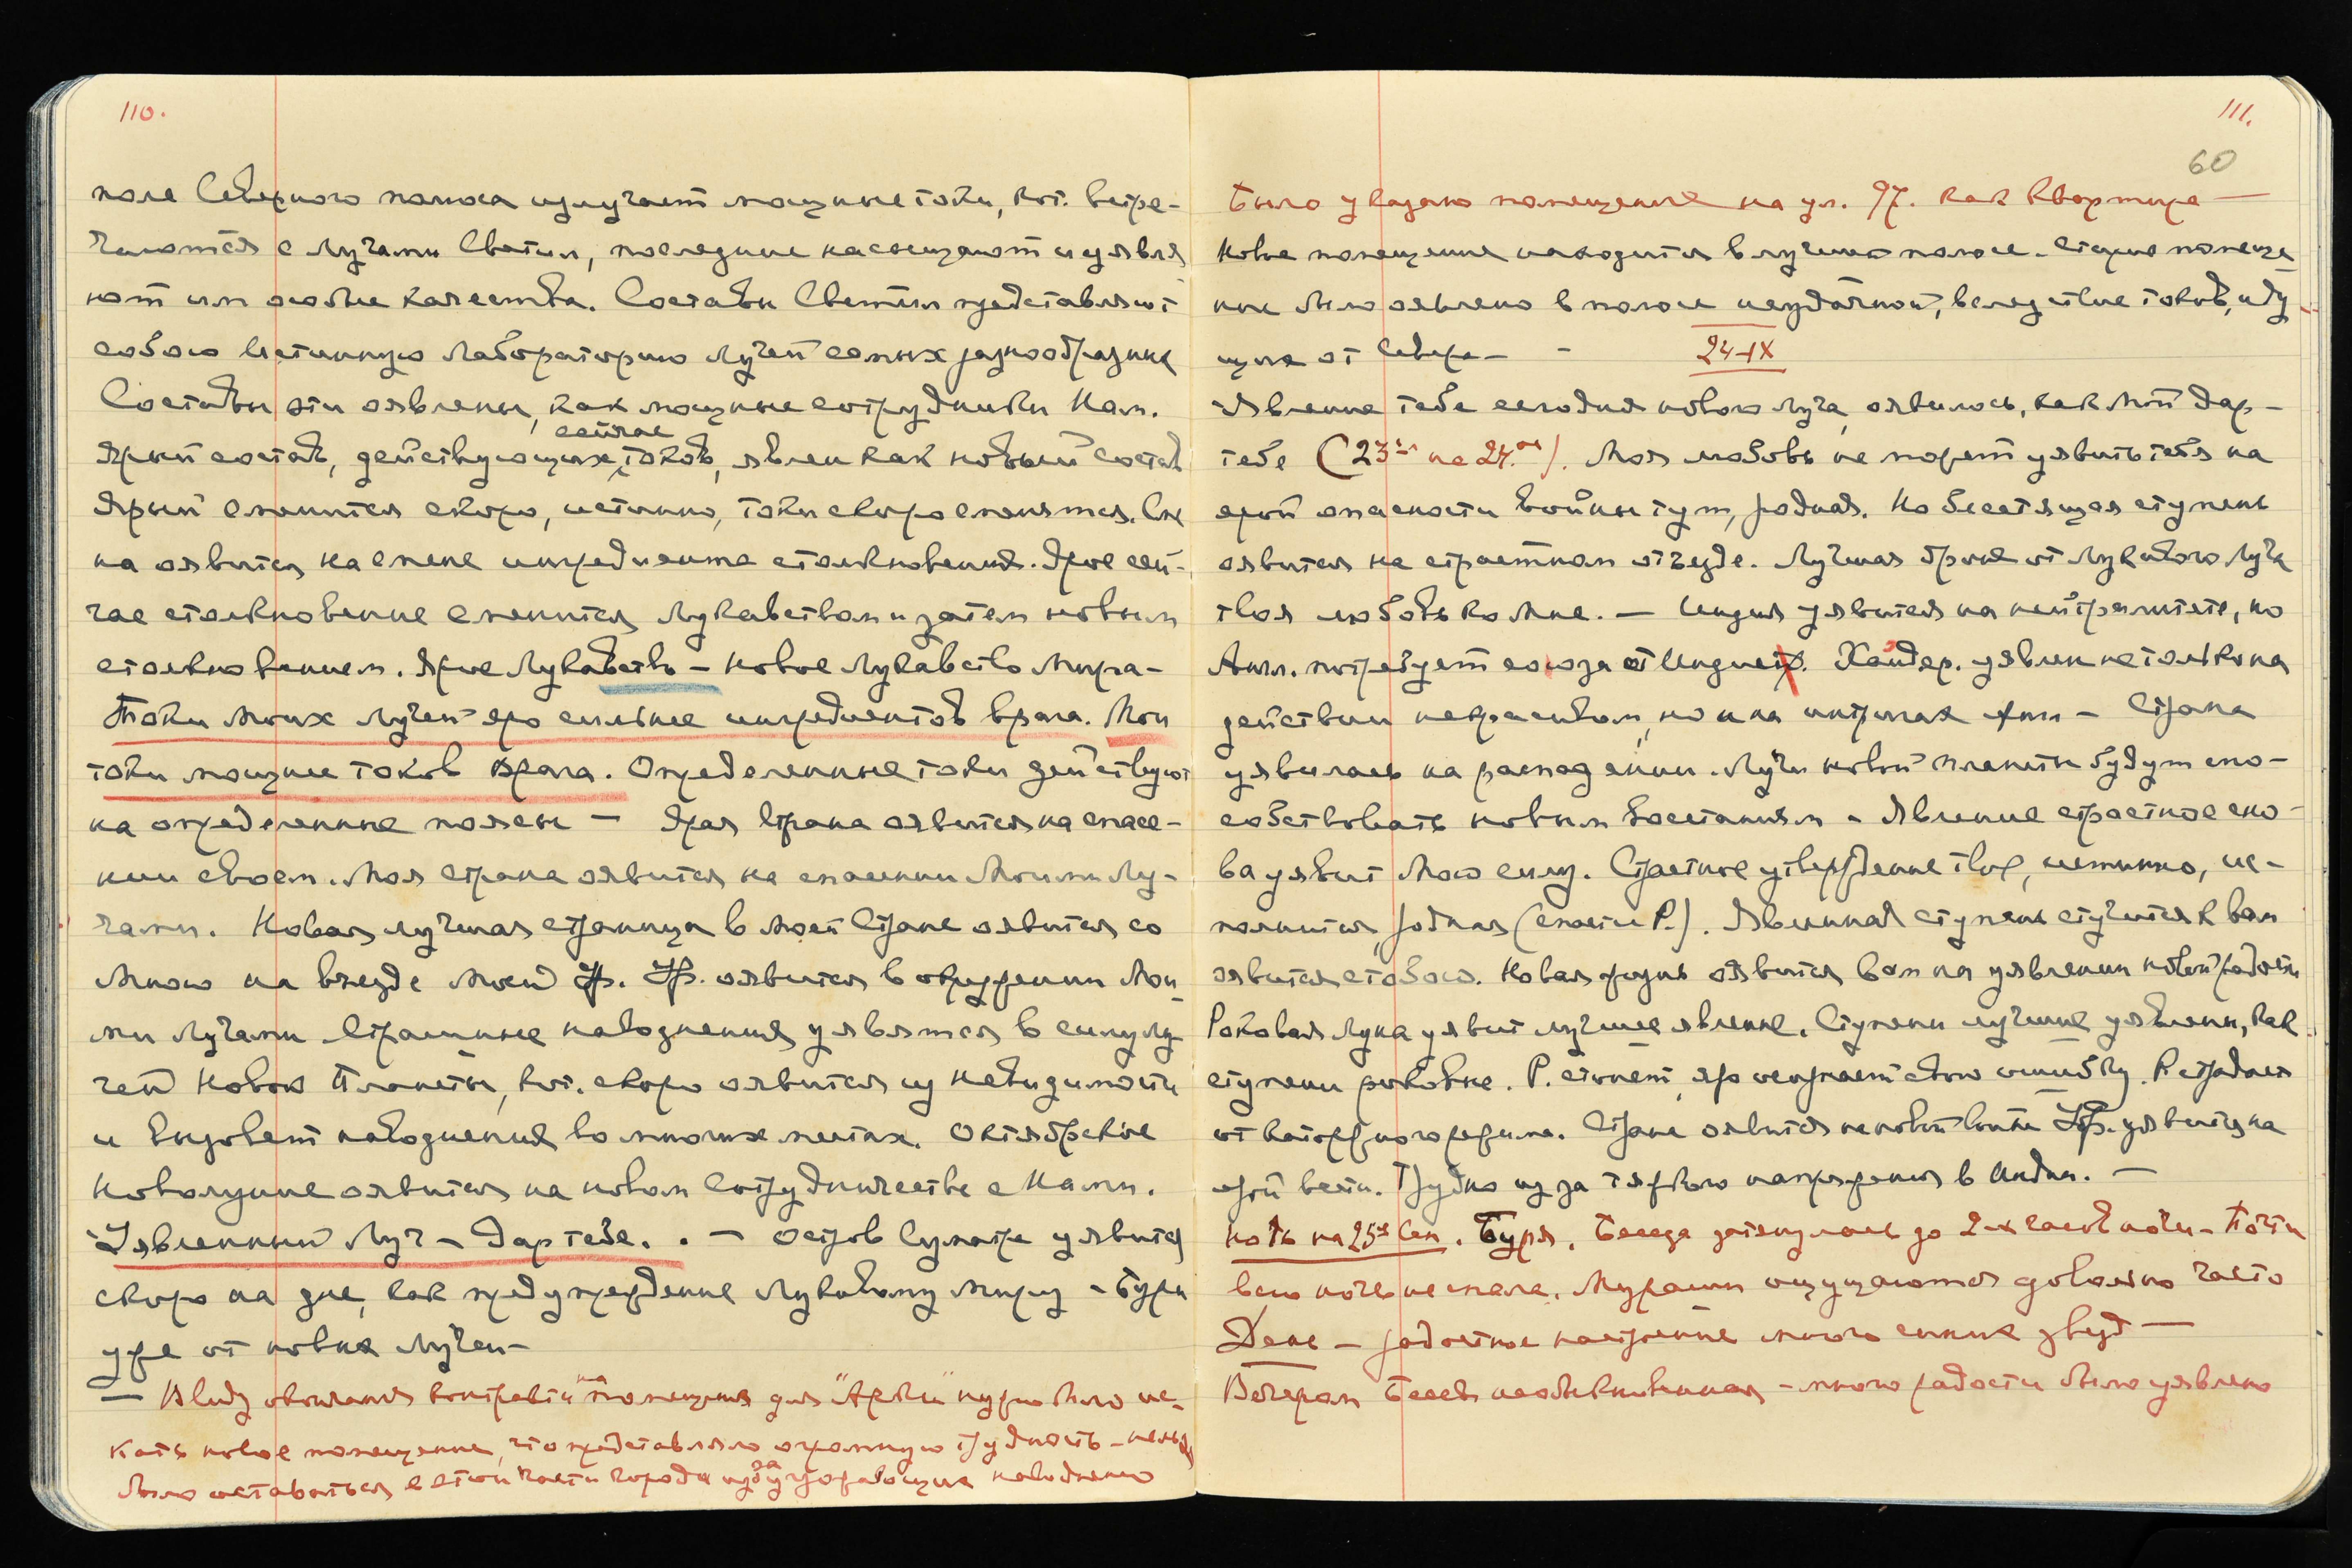 110.
поле Северного полюса излучает мощные токи, кот. встре-
чаются с Лучами Светил, последние насыщают и уявля
ют им особые качества. Составы Светил представляют
собою истинную Лабораторию Лучей самых разнообразных
Составы эти оявлены, как мощные сотрудники Нам.
сейчас
Ярый состав, действующих токов, явлен как новый состав
Ярый сменится скоро, истинно, токи скоро сменятся. Сме
на оявится на смене ингредиента столкновения. Ярое сей-
час столкновение сменится Лукавством и затем новым
столкновением. Ярое Лукавство – новое Лукавство Мира –
Токи Моих Лучей яро сильнее ингредиентов врага. Мои
токи мощнее токов врага. Определенные токи действуют
на определенные поясы – Ярая Страна оявится на спасе-
нии своем. Моя страна оявится на спасении Моими Лу-
чами. Новая лучшая страница в Моей Стране оявится со
Мною на въезде Моей Ур. Ур. оявится в окружении Мои
ми Лучами Страшные наводнения уявятся в силу лу
чей Новой Планеты, кот. скоро оявится из Невидимости
и вызовет наводнения во многих местах. Октябрьское
Новолуние оявится на новом Сотрудничестве с Нами.
Уявленный Луч – Дар тебе. . – Остров Суматра уявится
скоро на дне, как предупреждение Лукавому миру – Бури
уже от новых Лучей –
– Ввиду окончания контракта на помещения для "Арсы" нужно было ис-
кать новое помещение, что представляло огромную трудность – нельзя
было оставаться в этой части города из за угрожающих наводнений
111.
60
Было указано помещение на ул. 97. как Квартира –
Новое помещение находится в лучшей полосе. Старое помеще
ние было оявлено в полосе неудачной, вследствие токов, иду
щих от Севера – –
24-IX
Явление тебе сегодня нового луча, оявилось, как Мой Дар –
тебе (23го на 24.ое). Моя любовь не может уявить тебя на
ярой опасности войны тут, родная. Но блестящая ступень
оявится на страстном отъезде. Лучшая броня от Лукавого Луча
твоя любовь ко Мне. – Индия уявится на нейтралитете, но
Англ. потребует союза от Индии. Хайдер. уявлен не только на
действии некрасивом, но и на интригах Англ – Страна
уявилась на распадении. Лучи новой планеты будут спо-
собствовать новым восстаниям – Явление страстное сно-
ва уявит Мою силу. Страстное утверждение твое, истинно, ис-
полнится, родная (спасти Р.). Явленная ступень стучится к вам
оявится с тобою. Новая жизнь оявится вам на уявлении новой радости
Роковая Луна уявит лучшее явление. Ступени лучшие уявлены, как
ступени роковые. Р. стонет, яро осознает свою ошибку. Р. страдает
от каторжного режима. Стране оявится на новой войне Ур. уявится на
ярой вести. Трудно из за тяжкого напряжения в Индии. –
Ночь на 25ое Сен. Буря. Беседа затянулась до 2-х часов ночи – Почти
всю ночь не спала. Мурашки ощущаются довольно часто
День – радостное настроение много синих звезд –
Вечером Беседа необыкновенная – много радости было уявлено